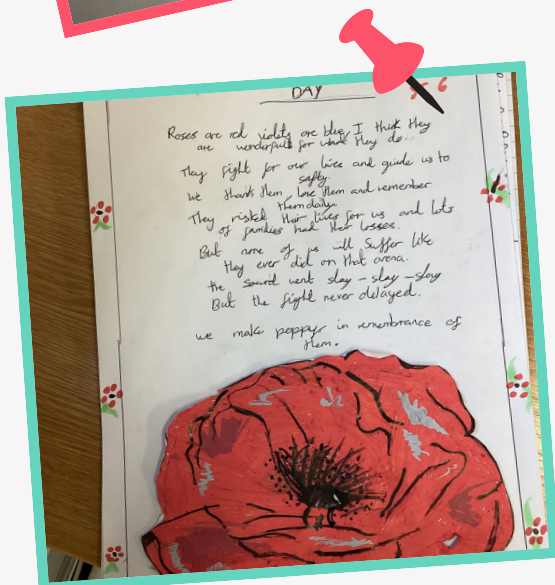 DAY
Roses are red violets are blue, I think they
are wonderfull for what they do.
They fight for our lives and guide us to
safty.
We thank them, love them and remember
them daily.
They risked their lives for us and lots
of families had their losses.
But none of us will suffer like
they ever did on that arena.
the sound went slay - slay - slay
But the fight never delayed.
we make poppys in remembrance of
them.